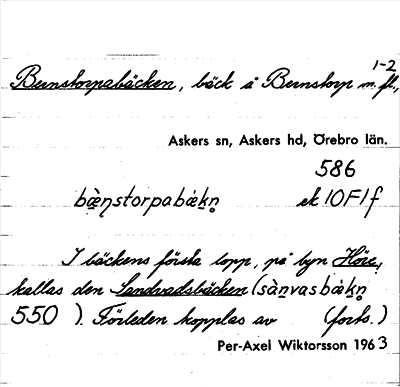 1-2
Bernstorpabäcken, bäck å Bernstorp m.fl.,
Askers sn, Askers hd, Örebro län.
586
bæ̀ṇstorpabǽkn̥ ek 10F1f
I bäckens första lopp, på byn Höre,
kallas den Sandvadsbäcken (sànvasbækn̥
550 ). Förleden kopplas av (forts.)
Per-Axel Wiktorsson 1963